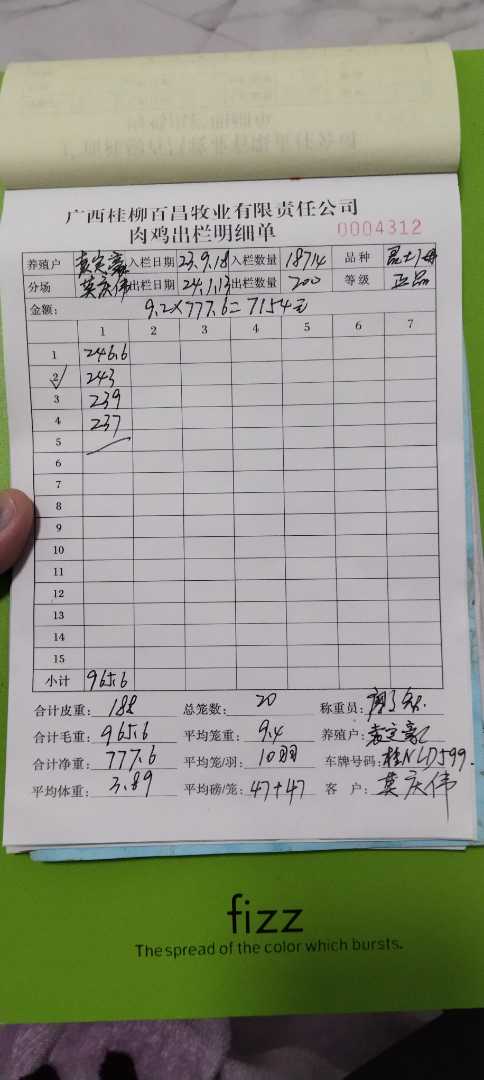 广西桂柳百昌牧业有限责任公司
肉鸡出栏明细单 0004312
养殖户 袁定豪 入栏日期 23.9.18 入栏数量 18714 品种
分场 莫庆伟 出栏日期 24.1.13 出栏数量 200 等级 正品
金额: 9.2×777.6=7154元
1 2 3 4 5 6 7
1 246.6
2 243
3 239
4 237
5
6
7
8
9
10
11
12
13
14
15
小计 965.6
合计皮重: 188 总笼数: 20 称重员:
合计毛重: 965.6 平均笼重: 9.4 养殖户: 袁定豪
合计净重: 777.6 平均笼/羽: 10羽 车牌号码: 桂NLD599
平均体重: 3.89 平均磅/笼: 47+47 客户: 莫庆伟
fizz
The spread of the color which bursts.